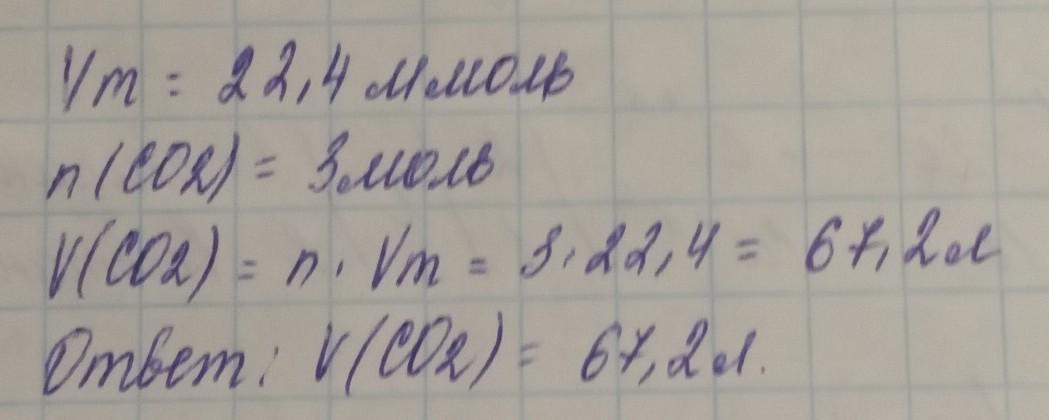 Vm = 22,4 лмоль
n(CO2) = 3моль
V(CO2) = n · Vm = 3 · 22,4 = 67,2л
Ответ: V(CO2) = 67,2л.